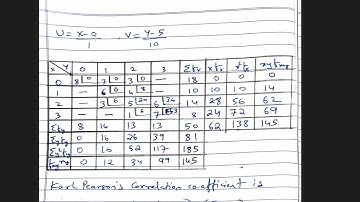 U = x-0 / 1   V = y-5 / 10
x y 0 1 2 3 Σfx xfx x²fx xyfxy
0 8 0 7 0 3 0 — 18 0 0 0
1 — 6 6 4 8 — 10 10 10 14
2 — 3 6 5 6 14 28 56 62
3 — — 1 6 7 8 24 72 69
Σfy 8 16 13 13 50 62 138 145
Σyfy 0 16 26 39 81
Σy²fy 0 16 52 117 185
0 12 34 99 145
Karl Pearson's Correlation coefficient is